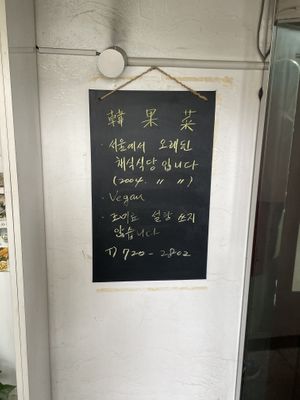 韓 果 菜
· 서울에서 오래된
채식식당 입니다
(2004. 〃 〃)
· Vegan
· 조미료 설탕 쓰지
않습니다
T) 720-2802